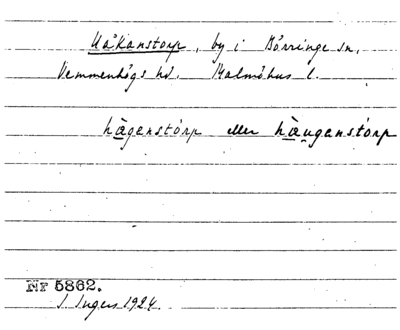 Håkanstorp, by i Börringe sn,
Vemmenhögs hd. Malmöhus l.
hägenstórp eller häugenstórp
Nr 5862.
I. Ingers 1924.